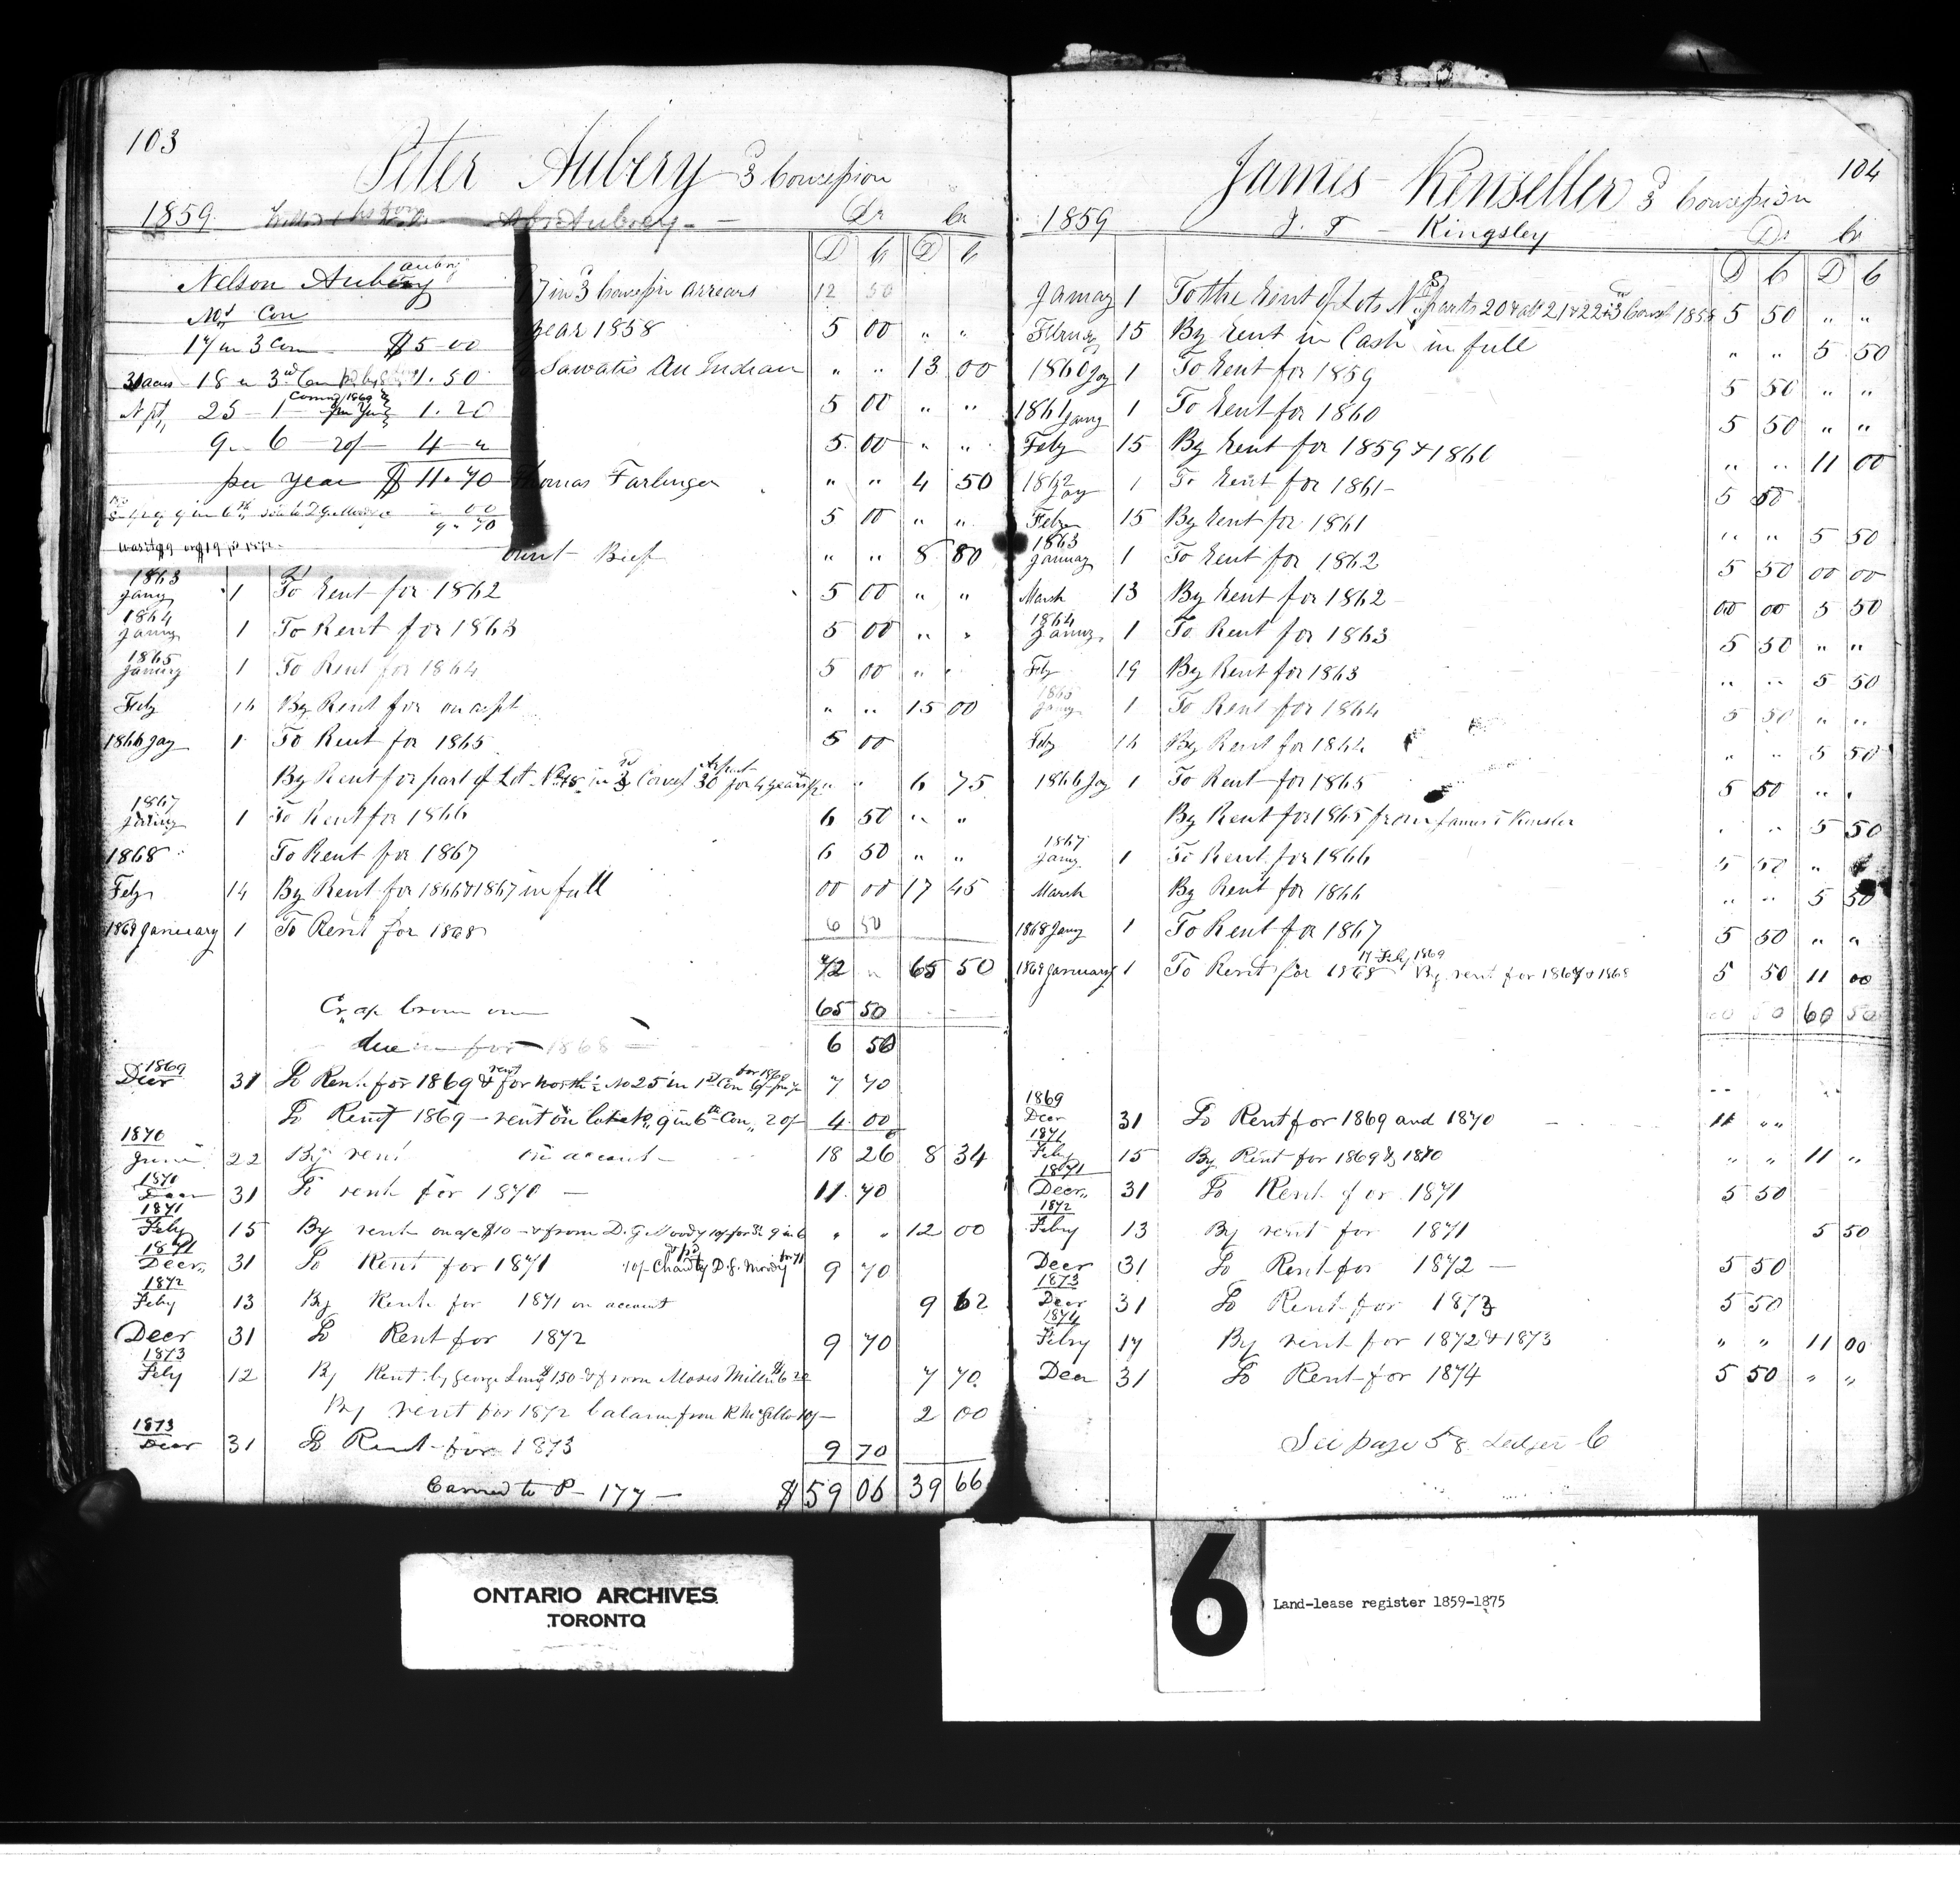 103
Peter Aubery 3 Concession
1859 Aubrey Dr Cr
D C D C
Nelson Aubery
Aubry
No. Con
17 in 3 Con $5 00
18 3rd Con 1.50
N pt, 25 - 1 1.20
9 - 6 - 20/- 4 - "
per year $11.70
9 in 6th
9.70
17 in 3 Concession arrears 12 50
year 1858 5 00 " "
Sawatis An Indian " " 13 00
5 00 " "
5.00 " "
Thomas Farlinger " " 4 50
5 00 " "
Beef " " 8 80
1863 Jany 1 To Rent for 1862 5 00 " "
1864 Jany 1 To Rent for 1863 5 00 " "
1865 January 1 To Rent for 1864 5 00 " "
Feby By Rent for on acpt " " 15 00
1866 Jay 1 To Rent for 1865 5 00
By Rent for part of Lot No. 18 in 3 Concess 30 for 4 years " " 6 75
1867 1 To Rent for 1866 6 50 " "
1868 To Rent for 1867 6 50 " "
Feby 14 By Rent for 1866 & 1867 in full 00 00 17 45
1869 January 1 To Rent for 1868 6 50
72 " 65 50
65 50
due for 1868 6 50
1869 Decr 31 To Rent for 1869 & rent for north ½ No 25 in 1st Con for 1869 7 70
To Rent 1869 - rent on 9 in 6th Con, 20/- 4.00
1870 June 22 By rent on account 18 26 8 34
1870 Decr 31 To rent for 1870 - 11.70
1871 Feby 15 By rent on a/c $10 - & from D. G. Moody 10/- for 9 in 6 " " 12 00
1871 Decr. 31 To Rent for 1871 10/- D. G. Moody for 71 9 70
1872 Feby 13 By Rent for 1871 on account 9 62
Decr 31 To Rent for 1872 9 70
1873 Feby 12 By Rent by George 150 & from Moses Miller 6 20 7 70
By rent for 1872 balance from 10/- 2 00
1873 Decr 31 To Rent for 1873 9 70
Carried to P - 177 - $59 06 39 66
104
James Kenseller 3 Concession
1859 J. T - Kingsley Dr Cr
D C D C
January 1 To the Rent of Lots No. parts 20 & 21 & 22 in 3 Concs 1858 5 50 " "
Februay 15 By Rent in Cash in full " " 5 50
1860 Jay 1 To Rent for 1859 5 50 " "
1861 Jany 1 To Rent for 1860 5 50 " "
Feby 15 By Rent for 1859 & 1860 " " 11 00
1862 Jay 1 To Rent for 1861 5 50
Feby 15 By Rent for 1861 " " 5 50
1863 January 1 To Rent for 1862 5 50 00 00
March 13 By Rent for 1862 00 00 5 50
1864 January 1 To Rent for 1863 5 50 " "
Feby 19 By Rent for 1863 " " 5 50
1865 Jany 1 To Rent for 1864 5 50 " "
Feby By Rent for 1864 " " 5 50
1866 Jay 1 To Rent for 1865 5 50 " "
By Rent for 1865 from James T Kinsler " " 5 50
1867 Jany 1 To Rent for 1866 5 50 "
March By Rent for 1866 " " 5 50
1868 Jany 1 To Rent for 1867 5 50 " "
1869 January 1 To Rent for 1868 17 Feby 1869 By rent for 1867 & 1868 5 50 11 00
60 50 60 50
1869 Decr 31 To Rent for 1869 and 1870 11 " "
1871 Feby 15 By Rent for 1869 & 1870 " " 11 "
1871 Decr. 31 To Rent for 1871 5 50
1872 Febry 13 By rent for 1871 5 50
Decr 31 To Rent for 1872 - 5 50
1873 Decr 31 To Rent for 1873 5 50
1874 Febry 17 By rent for 1872 & 1873 " " 11 00
Decr 31 To Rent for 1874 5 50 " "
See page 58 Ledger C
ONTARIO ARCHIVES
TORONTO
6
Land-lease register 1859-1875